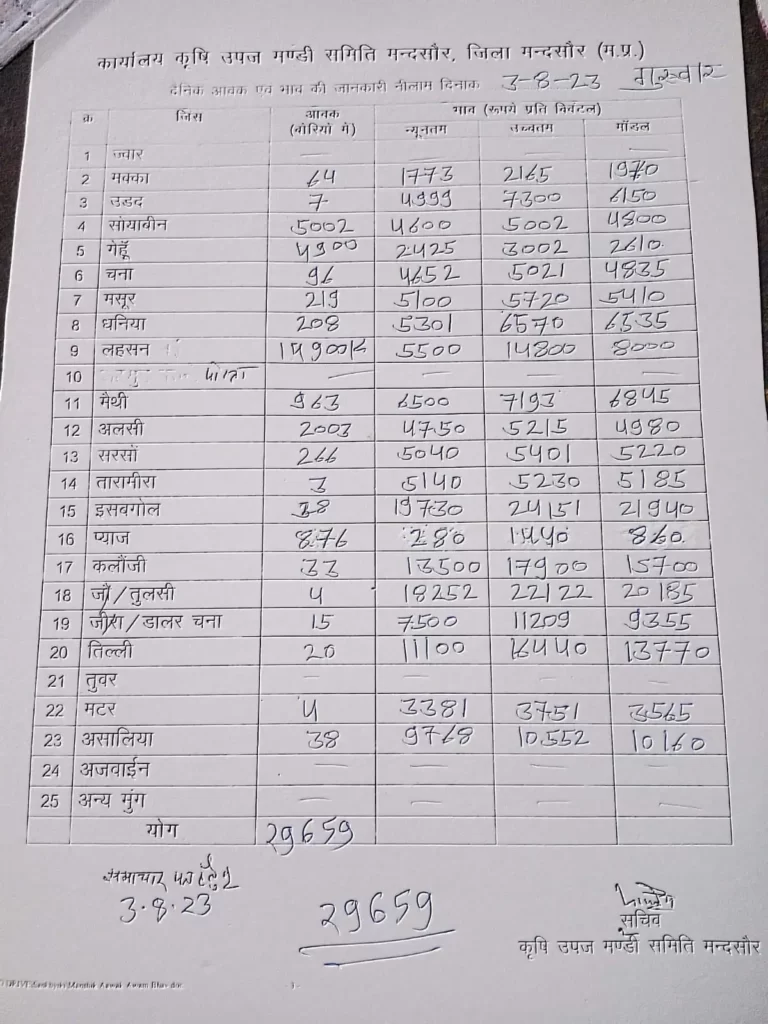 कार्यालय कृषि उपज मण्डी समिति मन्दसौर, जिला मन्दसौर (म.प्र.)
दैनिक आवक एवं भाव की जानकारी नीलाम दिनाक 3-8-23 गुरुवार
क्र जिंस आवक (बोरियो में) भाव (रूपये प्रति क्विंटल)
न्यूनतम उच्चतम मॉडल
1 ज्वार — — — —
2 मक्का 64 1773 2165 1970
3 उडद 7 4999 7300 6150
4 सोयाबीन 5002 4600 5002 4800
5 गेहूँ 4900 2425 3002 2610
6 चना 96 4652 5021 4835
7 मसूर 219 5100 5720 5410
8 धनिया 208 5301 6570 6535
9 लहसन 5500 14800 8000
10 — — — —
11 मैथी 963 6500 7193 6845
12 अलसी 2003 4750 5215 4980
13 सरसों 266 5040 5401 5220
14 तारामीरा 3 5140 5230 5185
15 इसबगोल 19730 24151 21940
16 प्याज 876 280 1440 860
17 कलौंजी 33 13500 17900 15700
18 जौ/तुलसी 4 18252 22122 20185
19 जीरा/डालर चना 15 7500 11209 9355
20 तिल्ली 20 11100 16440 13770
21 तुवर — — — —
22 मटर 4 3381 3751 3565
23 असालिया 38 9768 10552 10160
24 अजवाईन — — — —
25 अन्य मुंग — — — —
योग 29659
समाचार
3.8.23
29659
सचिव
कृषि उपज मण्डी समिति मन्दसौर